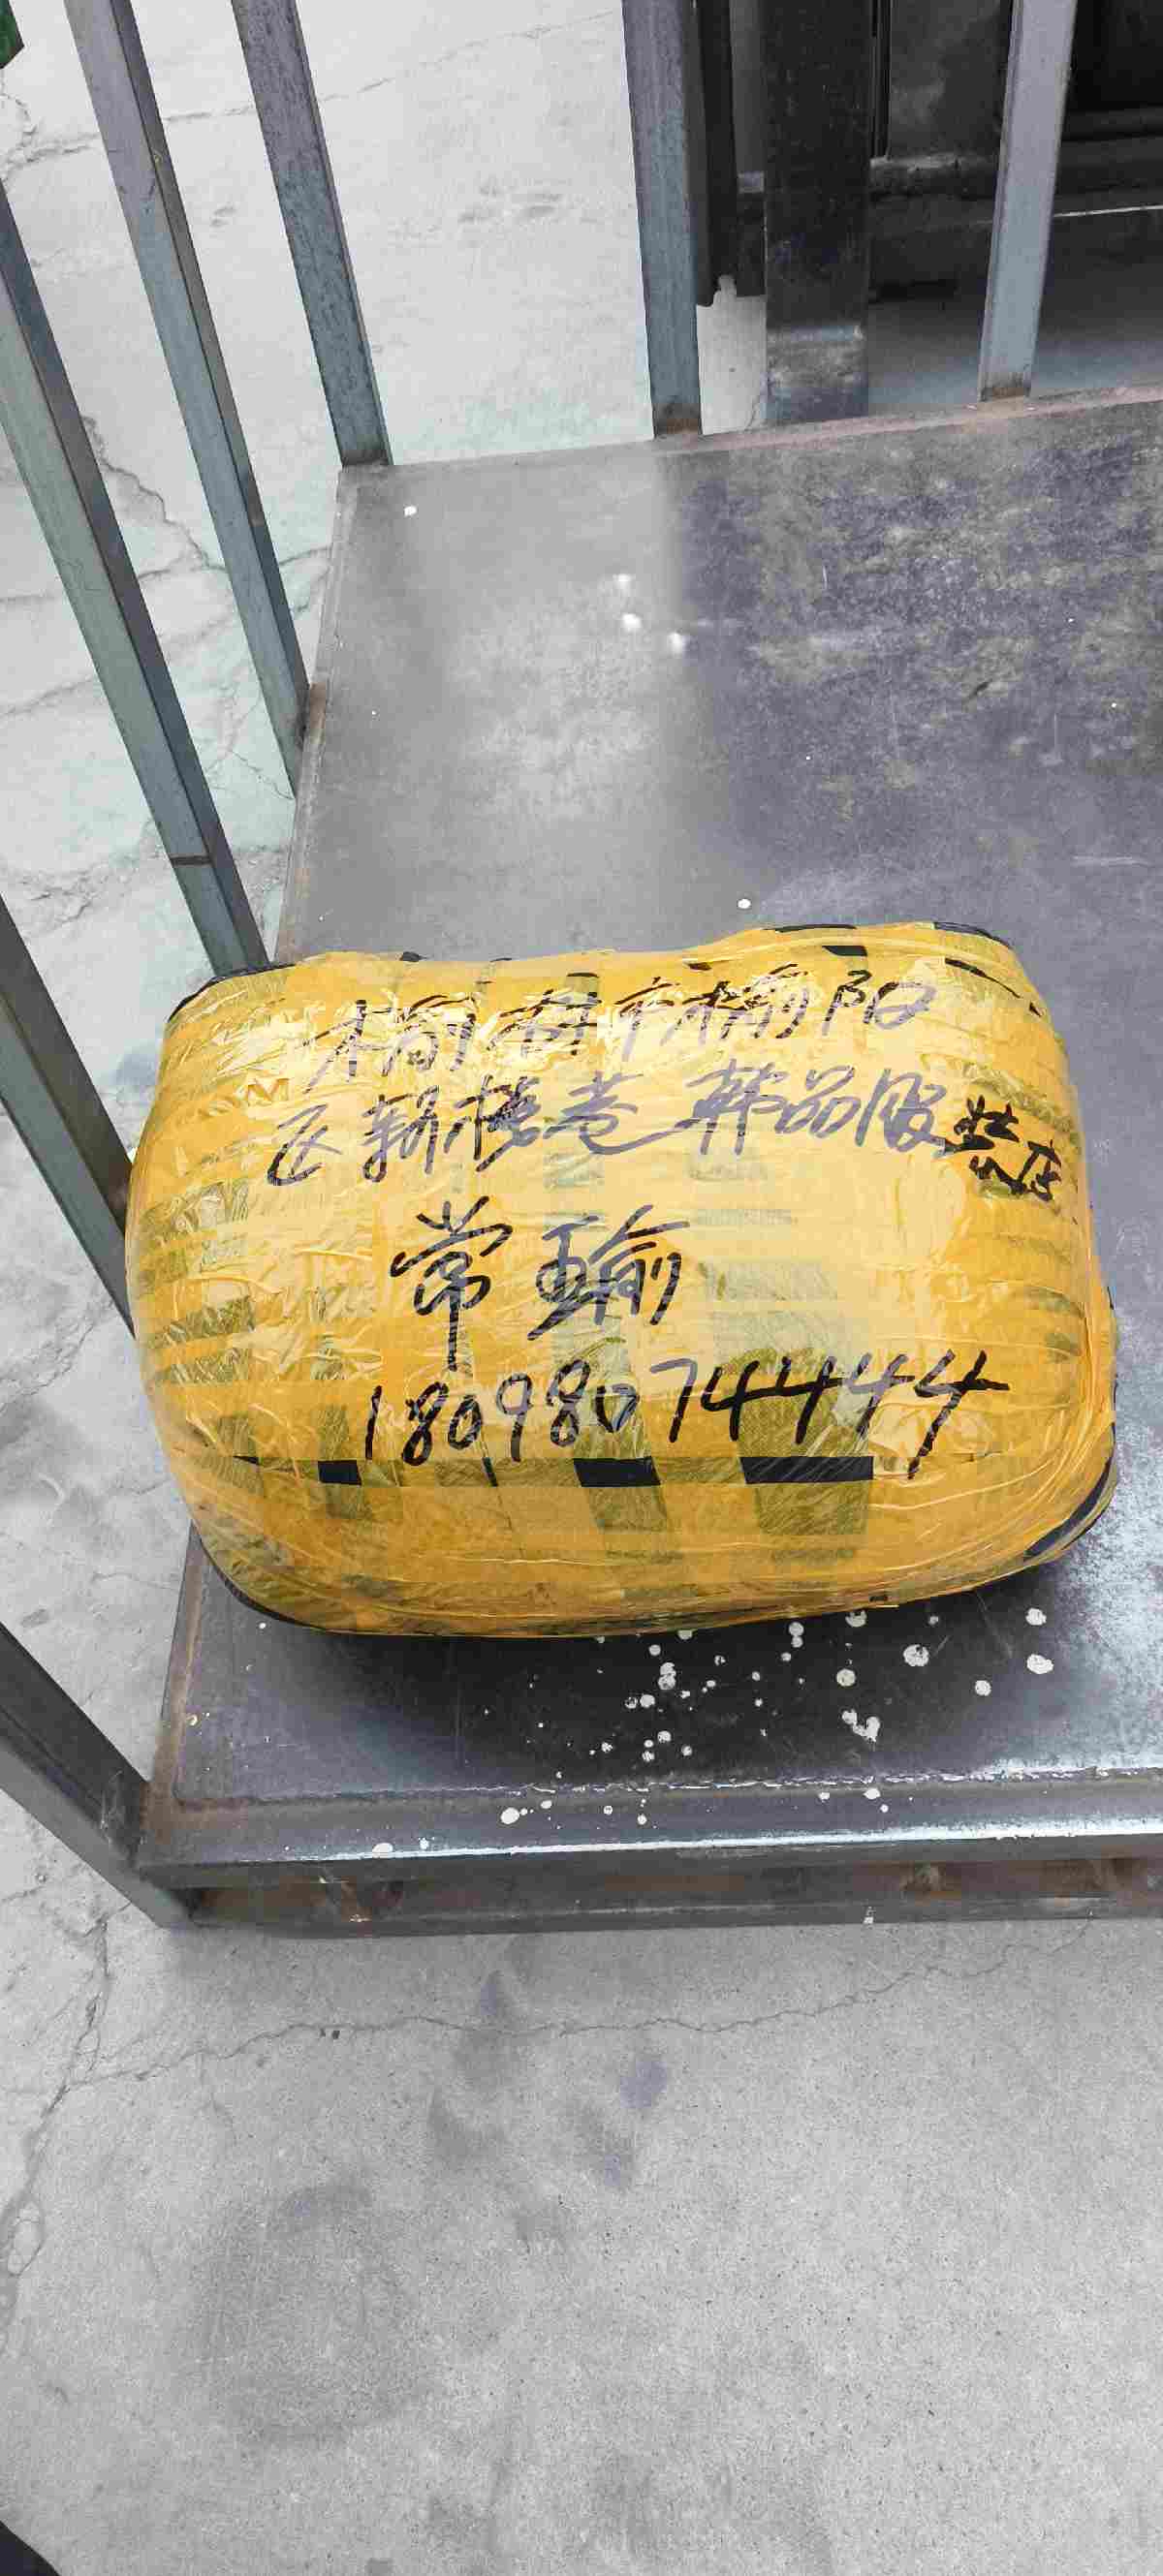 榆林市榆阳
区新楼巷韩品服装店
常瑜
18098074444